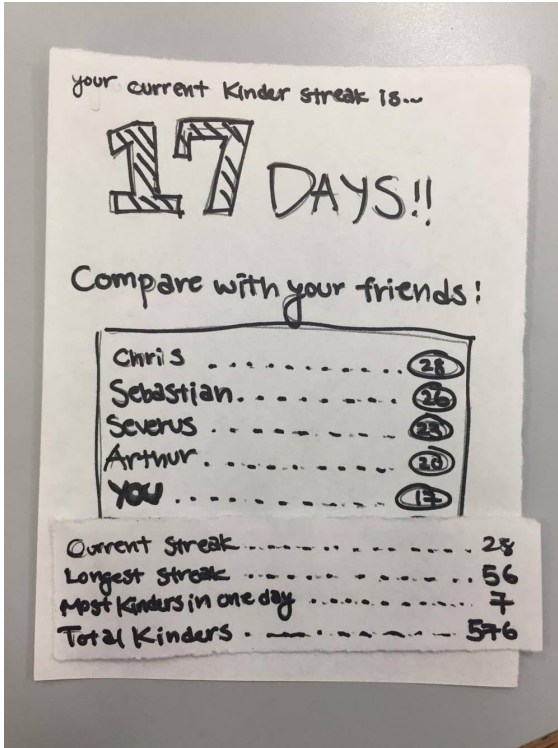 your current Kinder streak is...
17 DAYS!!
Compare with your friends!
Chris .............. 28
Sebastian .............. 26
Severus .............. 23
Arthur .............. 20
YOU .............. 17
Current Streak .............. 28
Longest Streak .............. 56
Most Kinders in one day .............. 7
Total Kinders .............. 576